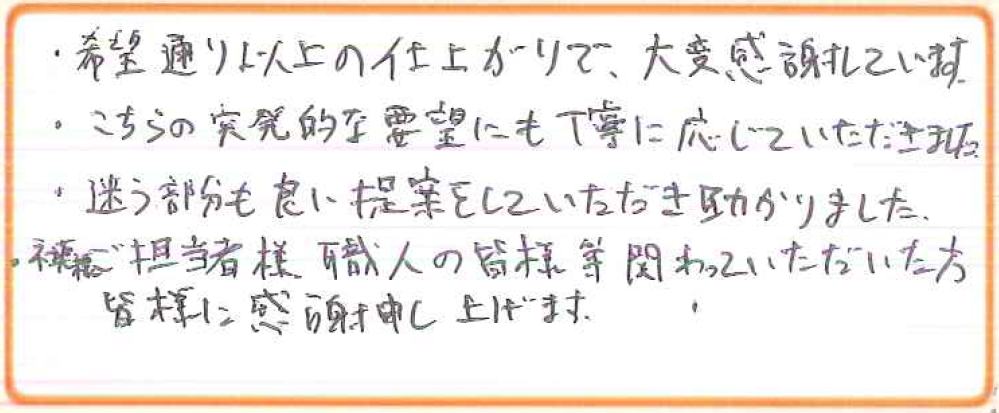 ・希望通り以上の仕上がりで、大変感謝しています
・こちらの突発的な要望にも丁寧に応じていただきました
・迷う部分も良い提案をしていただき助かりました。
・ご担当者様、職人の皆様等関わっていただいた方
皆様に感謝申し上げます。